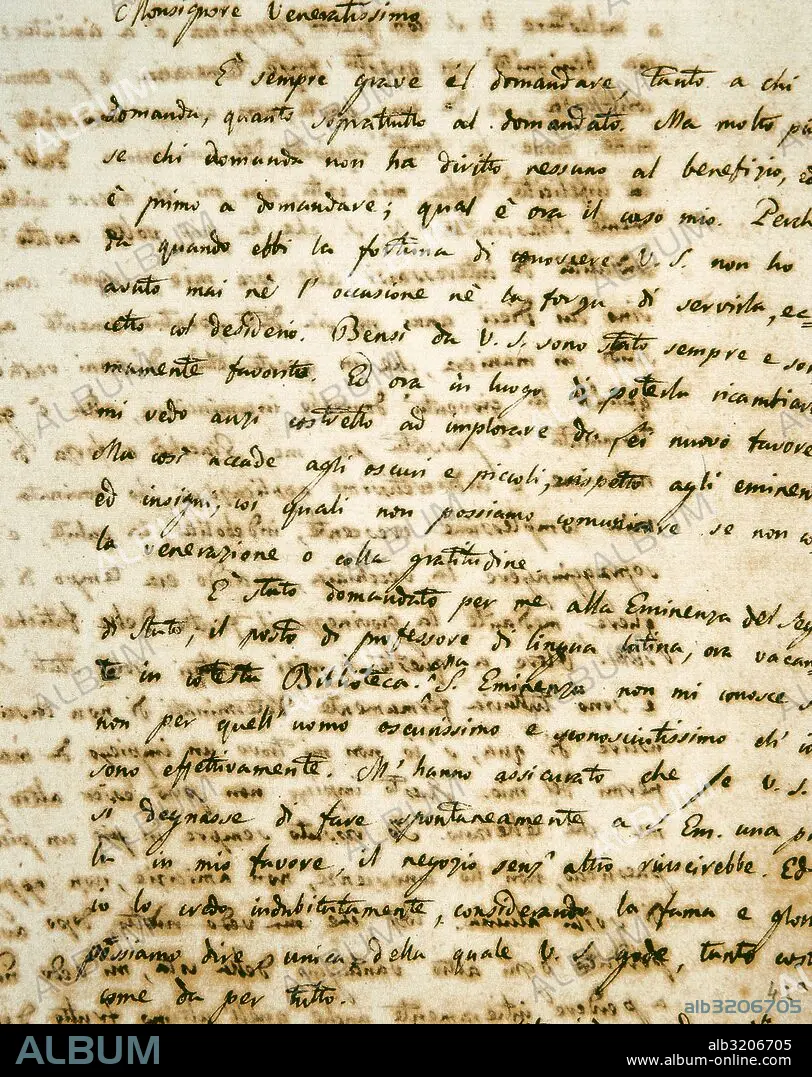 Monsignore Veneratissimo
È sempre grave il domandare, tanto a chi
domanda, quanto sopratutto al domandato. Ma molto più
se chi domanda non ha diritto nessuno al benefizio, ed
è primo a domandare; qual è ora il caso mio. Perch
da quando ebbi la fortuna di conoscere V. S. non ho
avuto mai nè l'occasione nè la forza di servirla, ec-
cetto col desiderio. Bensì da V. S. sono stato sempre e som
mamente favorito. Ed ora in luogo di poterla ricambiar
mi vedo anzi costretto ad implorare da Lei nuovo favore
Ma così accade agli oscuri e piccoli, rispetto agli eminen
ed insigni, coi quali non possiamo comunicare se non co
la venerazione o colla gratitudine
È stato domandato per me alla Eminenza del Seg
di Stato, il posto di professore di lingua latina, ora vacan-
te in cotesta Biblioteca. S. Eminenza non mi conosce s
non per quell'uomo oscurissimo e sconosciutissimo ch'io
sono effettivamente. M'hanno assicurato che se V. S.
si degnasse di fare spontaneamente a S. Em. una pa
la in mio favore, il negozio senz'altro riuscirebbe. Ed
io lo credo indubitatamente, considerando la fama e glor
possiamo dire unica della quale V. S. gode, tanto cost
come da per tutto.
ALBUM
alb3206705
ALBUM
alb3206705
www.album-online.com